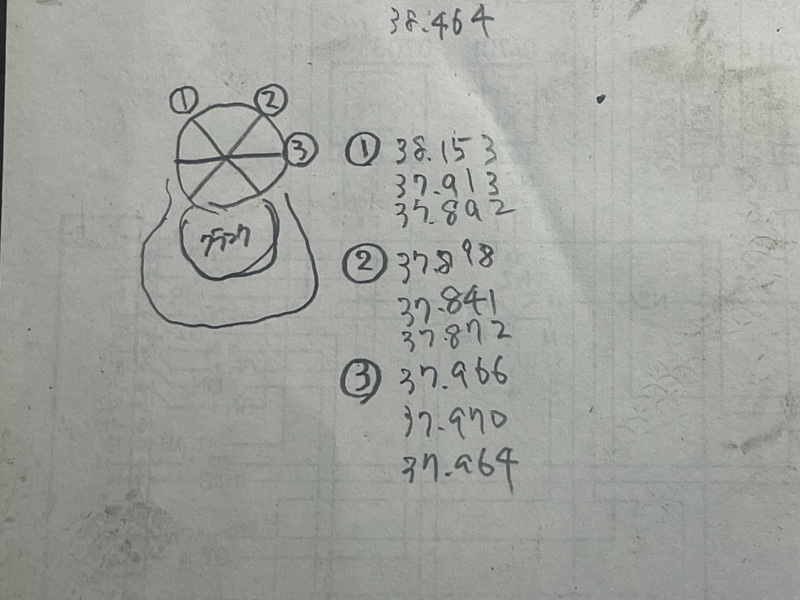 38.464
①
②
③
クランク
① 38.153
37.913
37.892
② 37.898
37.841
37.872
③ 37.966
37.970
37.964